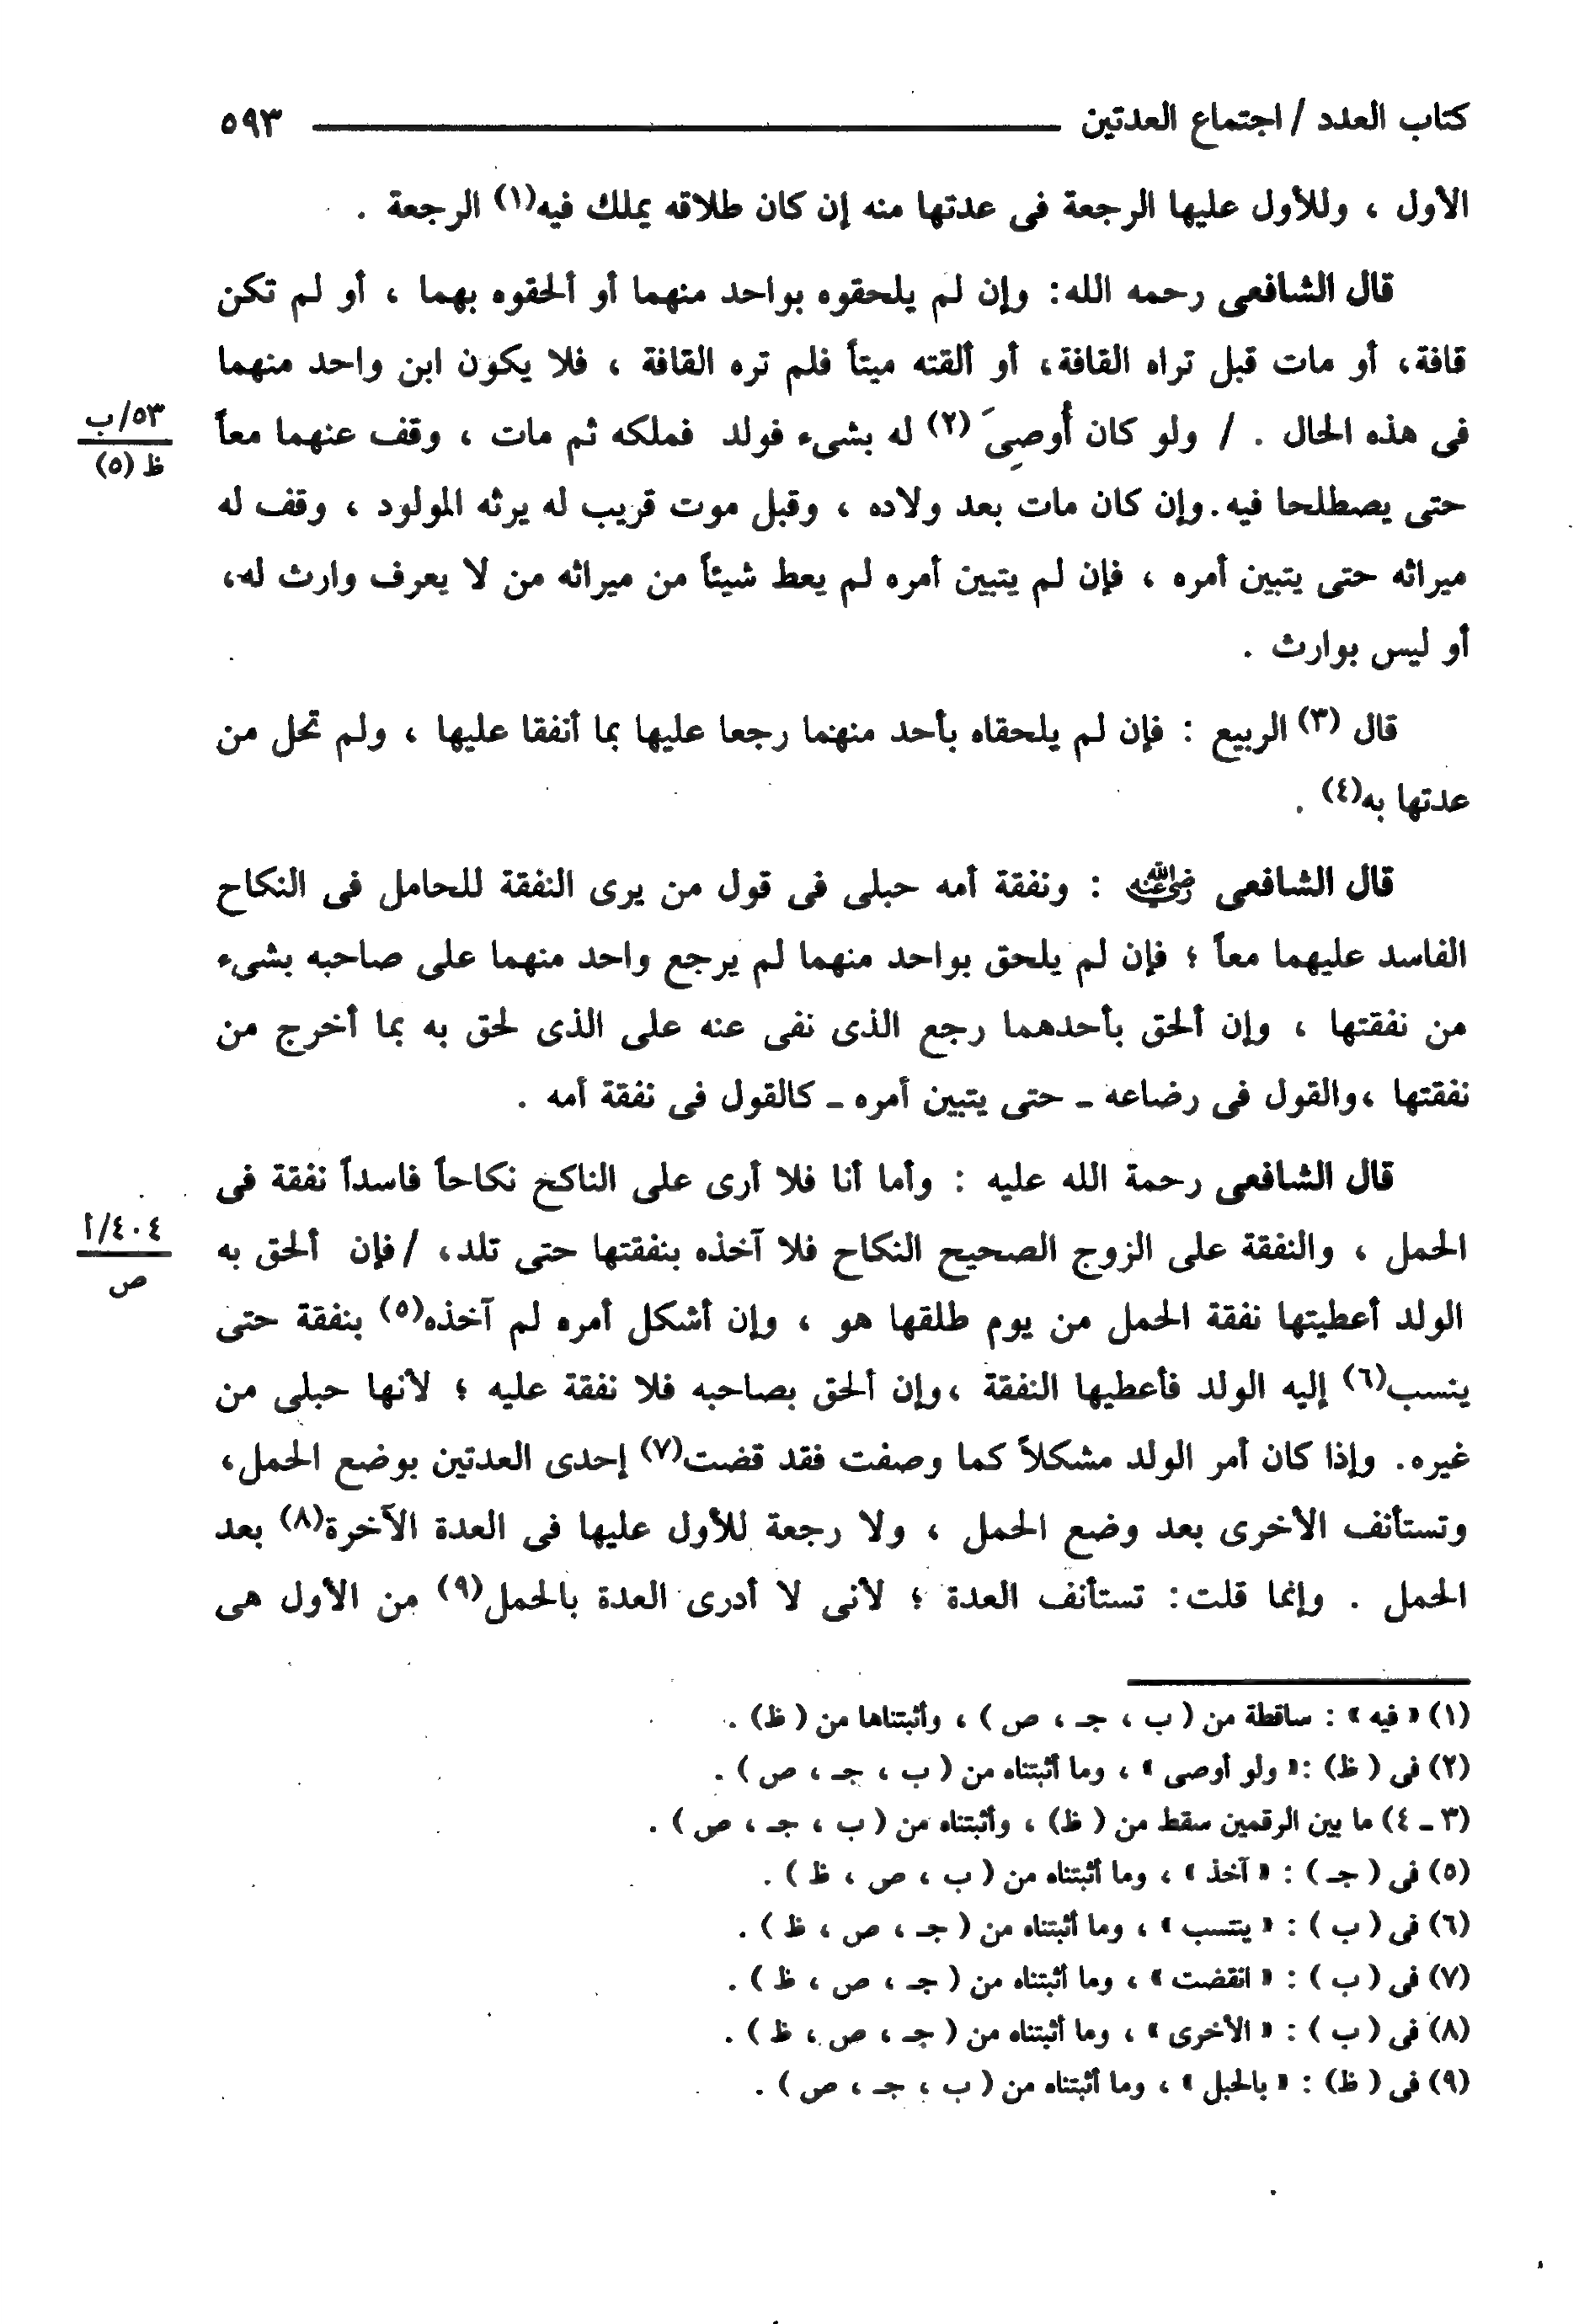 كتاب العدد / اجتماع العدتين ٥٩٣
الأول ، وللأول عليها الرجعة فى عدتها منه إن كان طلاقه يملك فيه(١) الرجعة .
قال الشافعى رحمه الله: وإن لم يلحقوه بواحد منهما أو ألحقوه بهما ، أو لم تكن
قافة، أو مات قبل تراه القافة، أو ألقته ميتاً فلم تره القافة ، فلا يكون ابن واحد منهما
فى هذه الحال . / ولو كان أُوصِىَ (٢) له بشىء فولد فملكه ثم مات ، وقف عنهما معاً
٥٣/ب
ظ (٥)
حتى يصطلحا فيه. وإن كان مات بعد ولاده ، وقبل موت قريب له يرثه المولود ، وقف له
ميراثه حتى يتبين أمره ، فإن لم يتبين أمره لم يعط شيئاً من ميراثه من لا يعرف وارث له،
أو ليس بوارث .
قال (٣) الربيع : فإن لم يلحقاه بأحد منهما رجعا عليها بما أنفقا عليها ، ولم تحل من
عدتها به(٤) .
قال الشافعى رضي الله عنه : ونفقة أمه حبلى فى قول من يرى النفقة للحامل فى النكاح
الفاسد عليهما معاً ؛ فإن لم يلحق بواحد منهما لم يرجع واحد منهما على صاحبه بشىء
من نفقتها ، وإن ألحق بأحدهما رجع الذى نفى عنه على الذى لحق به بما أخرج من
نفقتها ،والقول فى رضاعه ـ حتى يتبين أمره ـ كالقول فى نفقة أمه .
قال الشافعى رحمة الله عليه : وأما أنا فلا أرى على الناكح نكاحاً فاسداً نفقة فى
الحمل ، والنفقة على الزوج الصحيح النكاح فلا آخذه بنفقتها حتى تلد، /فإن ألحق به
٤٠٤/أ
ص
الولد أعطيتها نفقة الحمل من يوم طلقها هو ، وإن أشكل أمره لم آخذه(٥) بنفقة حتى
ينسب(٦) إليه الولد فأعطيها النفقة ،وإن ألحق بصاحبه فلا نفقة عليه ؛ لأنها حبلى من
غيره. وإذا كان أمر الولد مشكلاً كما وصفت فقد قضت(٧) إحدى العدتين بوضع الحمل،
وتستأنف الأخرى بعد وضع الحمل ، ولا رجعة للأول عليها فى العدة الآخرة(٨) بعد
الحمل . وإنما قلت: تستأنف العدة ؛ لأنى لا أدرى العدة بالحمل(٩) من الأول هى
(١) « فيه » : ساقطة من ( ب ، جـ ، ص ) ، وأثبتناها من ( ظ) .
(٢) فى ( ظ) :« ولو أوصى » ، وما أثبتناه من ( ب ، جـ ، ص ) .
(٣ ـ ٤) ما بين الرقمين سقط من ( ظ) ، وأثبتناه من ( ب ، جـ ، ص ) .
(٥) فى ( جـ ) : « آخذ » ، وما أثبتناه من ( ب ، ص ، ظ ) .
(٦) فى ( ب ) : « ينتسب » ، وما أثبتناه من ( جـ ، ص ، ظ ) .
(٧) فى ( ب ) : « انقضت » ، وما أثبتناه من ( جـ ، ص ، ظ ) .
(٨) فى ( ب ) : « الأخرى » ، وما أثبتناه من ( جـ ، ص ، ظ ) .
(٩) فى ( ظ) : « بالحبل » ، وما أثبتناه من ( ب ، جـ ، ص ) .